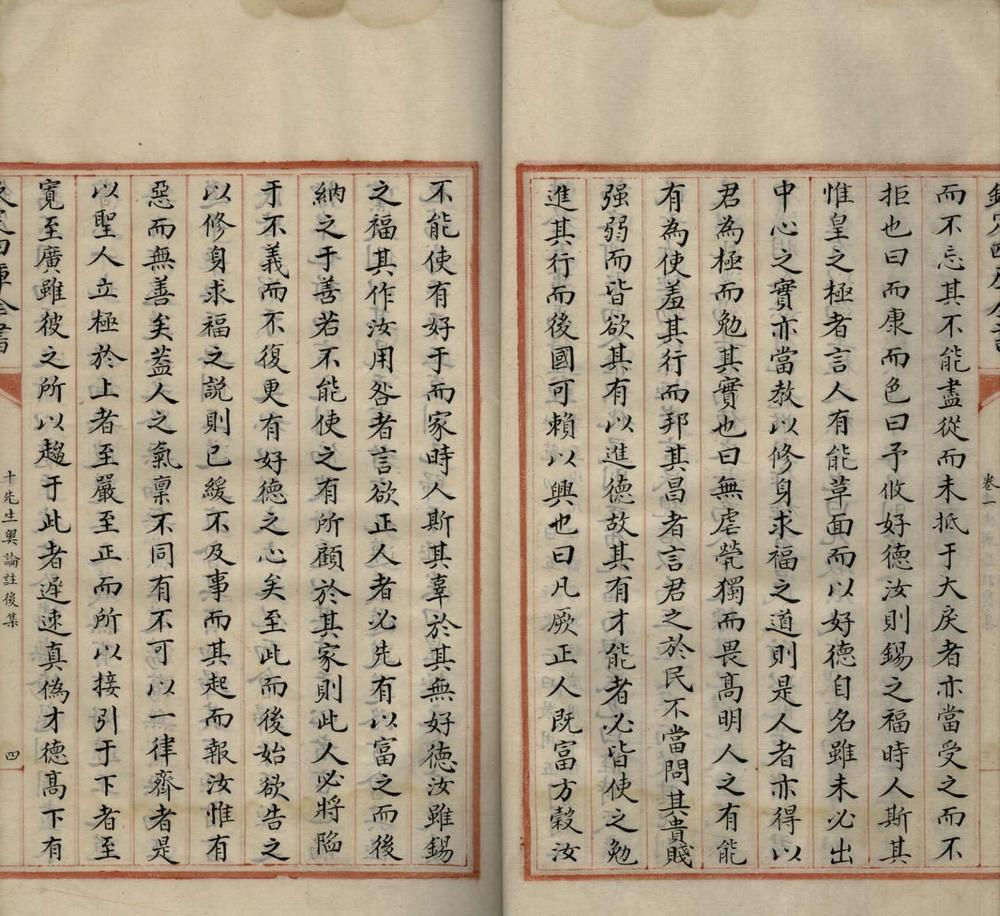 欽定四庫全書
卷一
而不忘其不能盡從而未抵于大戾者亦當受之而不
拒也曰而康而色曰予攸好德汝則錫之福時人斯其
惟皇之極者言人有能草面而以好德自名雖未必出
中心之實亦當教以修身求福之道則是人者亦得以
君為極而勉其實也曰無虐煢獨而畏髙明人之有能
有為使羞其行而邦其昌者言君之於民不當問其貴賤
强弱而皆欲其有以進德故其有才能者必皆使之勉
進其行而後國可賴以興也曰凡厥正人既富方穀汝
不能使有好于而家時人斯其辜於其無好德汝雖錫
之福其作汝用咎者言欲正人者必先有以富之而後
納之于善若不能使之有所顧於其家則此人必將陷
于不義而不復更有好德之心矣至此而後始欲告之
以修身求福之説則已緩不及事而其起而報汝惟有
惡而無善矣葢人之氣禀不同有不可以一律齊者是
以聖人立極於上者至嚴至正而所以接引于下者至
寛至廣雖彼之所以趨于此者遲速真偽才德髙下有
十先生奥論註後集
四